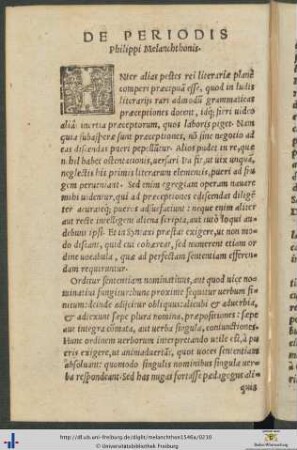 DE PERIODIS
Philippi Melanchthonis.
INter alias pestes rei literariæ planè
comperi præcipuã esse, quod in ludis
literarijs rari admodũ grammaticas
præceptiones docent, idq́; fieri uideo
aliã inertia præceptorum, quos laboris piget. Nam
quia subasperæ sunt præceptiones, nõ sine negocio ad
eas discendas pueri pepelluntur. Alios pudet in re, quæ
nihil habet ostentationis, uersari
neglectis his primis literarum elementis, pueri ad frugem
perueniant. Sed enim egregiam operam nauare
mihi uidentur, qui ad præceptiones ediscendas diligẽter
accuratéq́; pueros adsuefaciunt: neque enim aliter
aut recte intellegent aliena scripta, aut tutò loqui audebunt
ipsi. Et in syntaxi præstat exigere, ut non modo
discant, quid cui cohæreat, sed numerent etiam ordine
uocabula, quæ ad perfectam sententiam efferendam
requiruntur.
Orditur sententiam nominatiuus, aut quod uice nominatiui
fungitur: hunc proximè sequitur uerbum finitum:
deinde adijcitur obliquus casibus & aduerbia,
& adiexunt sæpe plura nomina, præpositiones: sæpe
aut integra cõmata, aut uerba singula, coniunctiones.
Hunc ordinem uerborum interpretando utile est, à pueris
exigere, ut animaduertãt, quot uoces sententiam
absoluant: quomodo singulis nominibus singula uerba
respondeant. Sed has nugas fortasse pædagogus aliquis
http://dl.ub.uni-freiburg.de/diglit/melanchthon1546a/0210
© Universitätsbibliothek Freiburg